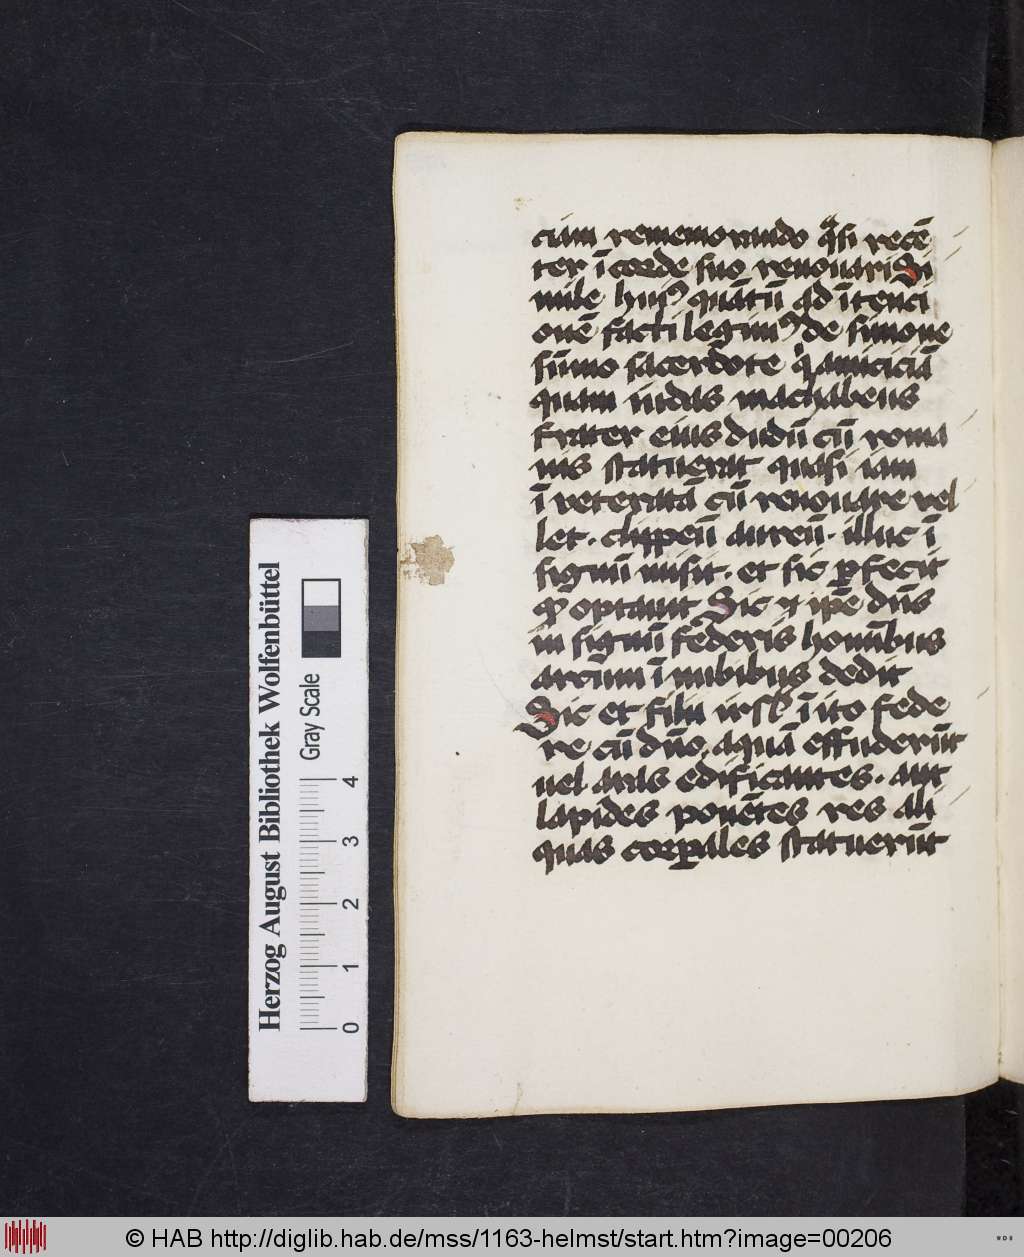 ciam rememorando qᵃsi recē
ter ī corde suo renouari Si
mile huiꝰ quātū ad ītenci
onē facti legimꝰ de simone
sūmo sacerdote qͥ amiciciā
quam iudas machabeus
frater eius dudū cū roma
nis statuerat quasi iam
ī veteratā cū renouare vel
let · clippeū aureū · illuc ī
signū misit · et sic ꝑfecit
qͩ optauit Sic ⁊ ip̄e dn̄s
in signū federis hominibus
arcum ī nubibus dedit
Sic et filii isrl̄ ī ito fede
re cū dn̄o aquā effuderūt
uel aras edificantes · aut
lapides ponētes res ali
quas corꝑales statuerūt
Herzog August Bibliothek Wolfenbüttel
Gray Scale
0 1 2 3 4
© HAB http://diglib.hab.de/mss/1163-helmst/start.htm?image=00206